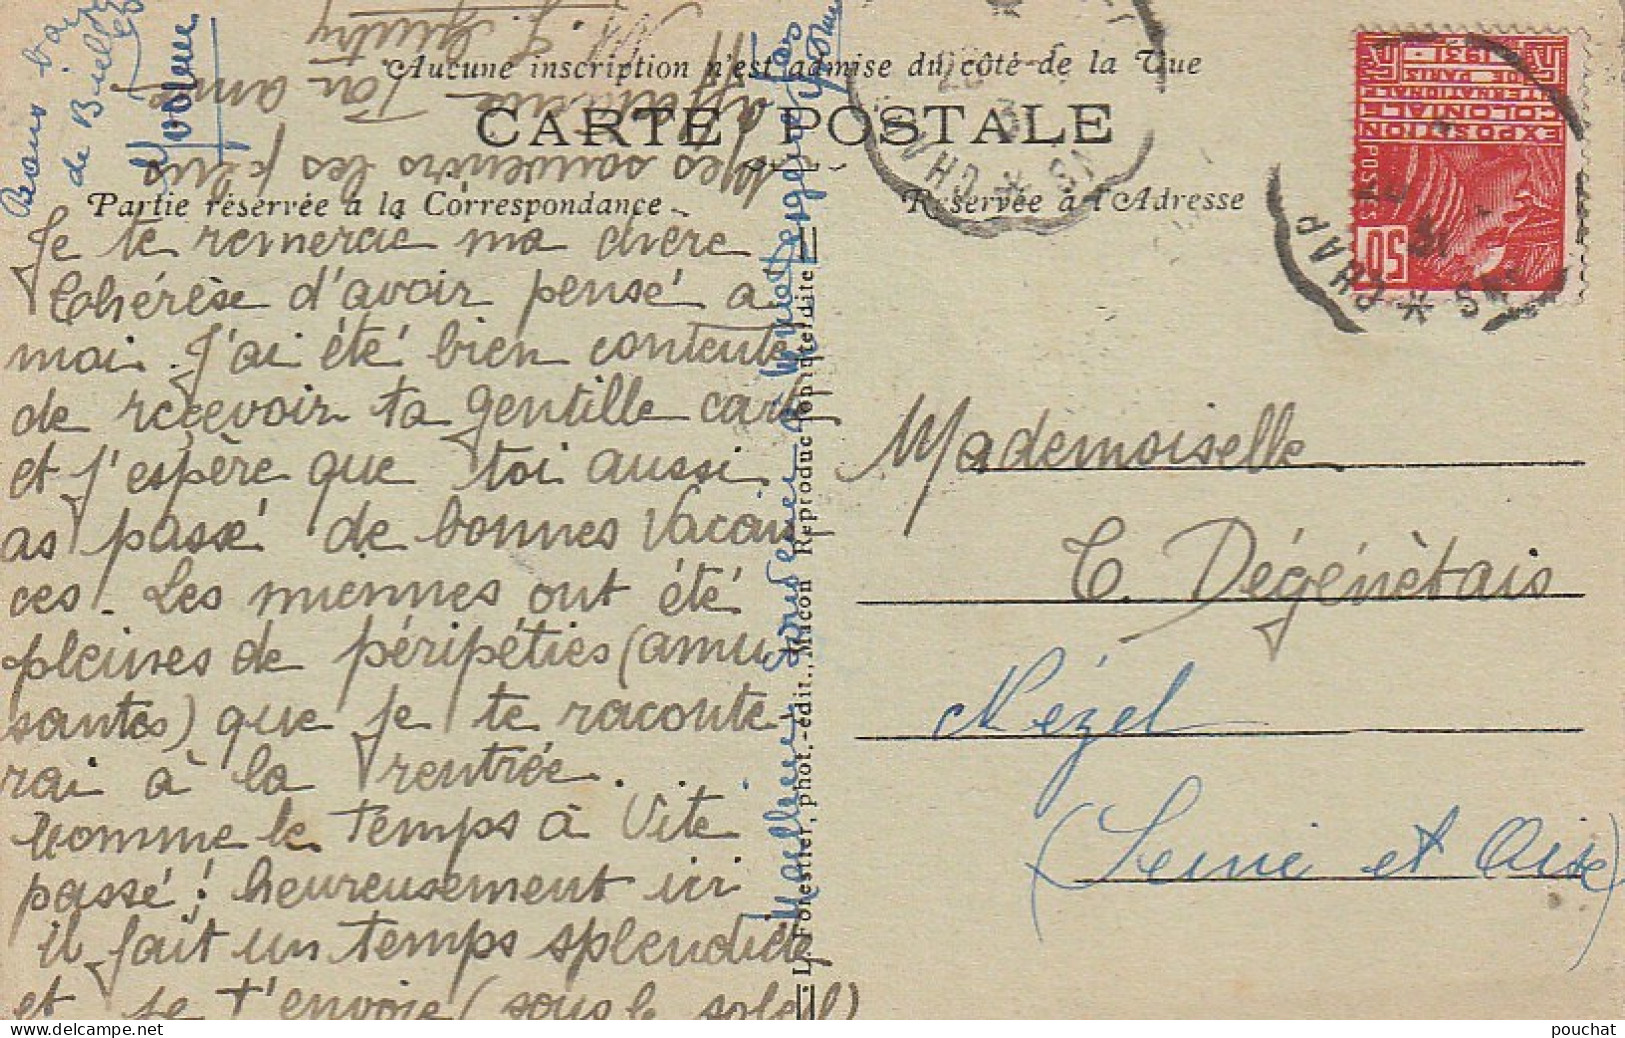 Aucune inscription n'est admise du côté de la Vue
CARTE POSTALE
Partie réservée à la Correspondance
Réservée à l'Adresse
Je te remercie ma chère
Thérèse d'avoir pensé a
moi. J'ai été bien contente
de recevoir ta gentille carte
et j'espère que toi aussi
as passé de bonnes vacan
ces. Les miennes ont été
pleines de péripéties (amu
santes) que je te raconte
rai à la rentrée.
Comme le temps à vite
passé; heureusement ici
il fait un temps splendide
et je t'envoie (sous le soleil)
mes souvenirs les plus
affectueux Ton amie
J.
Bons
de
Yvonne
Yvonne
L. Forestier, phot.-édit., Macon Reproduction interdite
EXPOSITION
COLONIALE
INTERNATIONALE
DE PARIS
1931
POSTES
50
Mademoiselle
T. Dégénètais
Nézel
(Seine et Oise)
pouchat